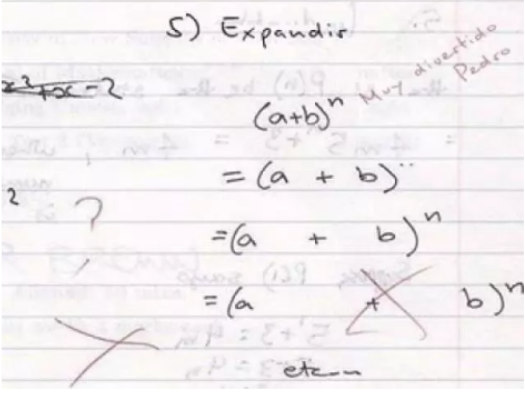 5) Expandir
Muy divertido
Pedro
x² + x - 2
(a+b)ⁿ
= (a + b)ⁿ
2
?
= (a + b)ⁿ
= (a + b)ⁿ
etc...